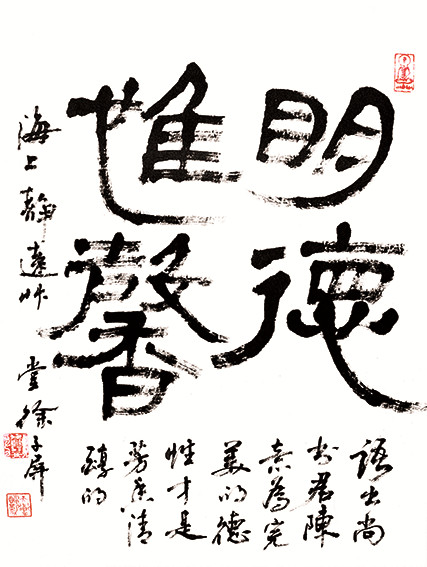 明德
惟馨
语出尚
书君陳
意為完
美的德
性才是
芳香清
醇的
海上静遠艸堂徐子屏